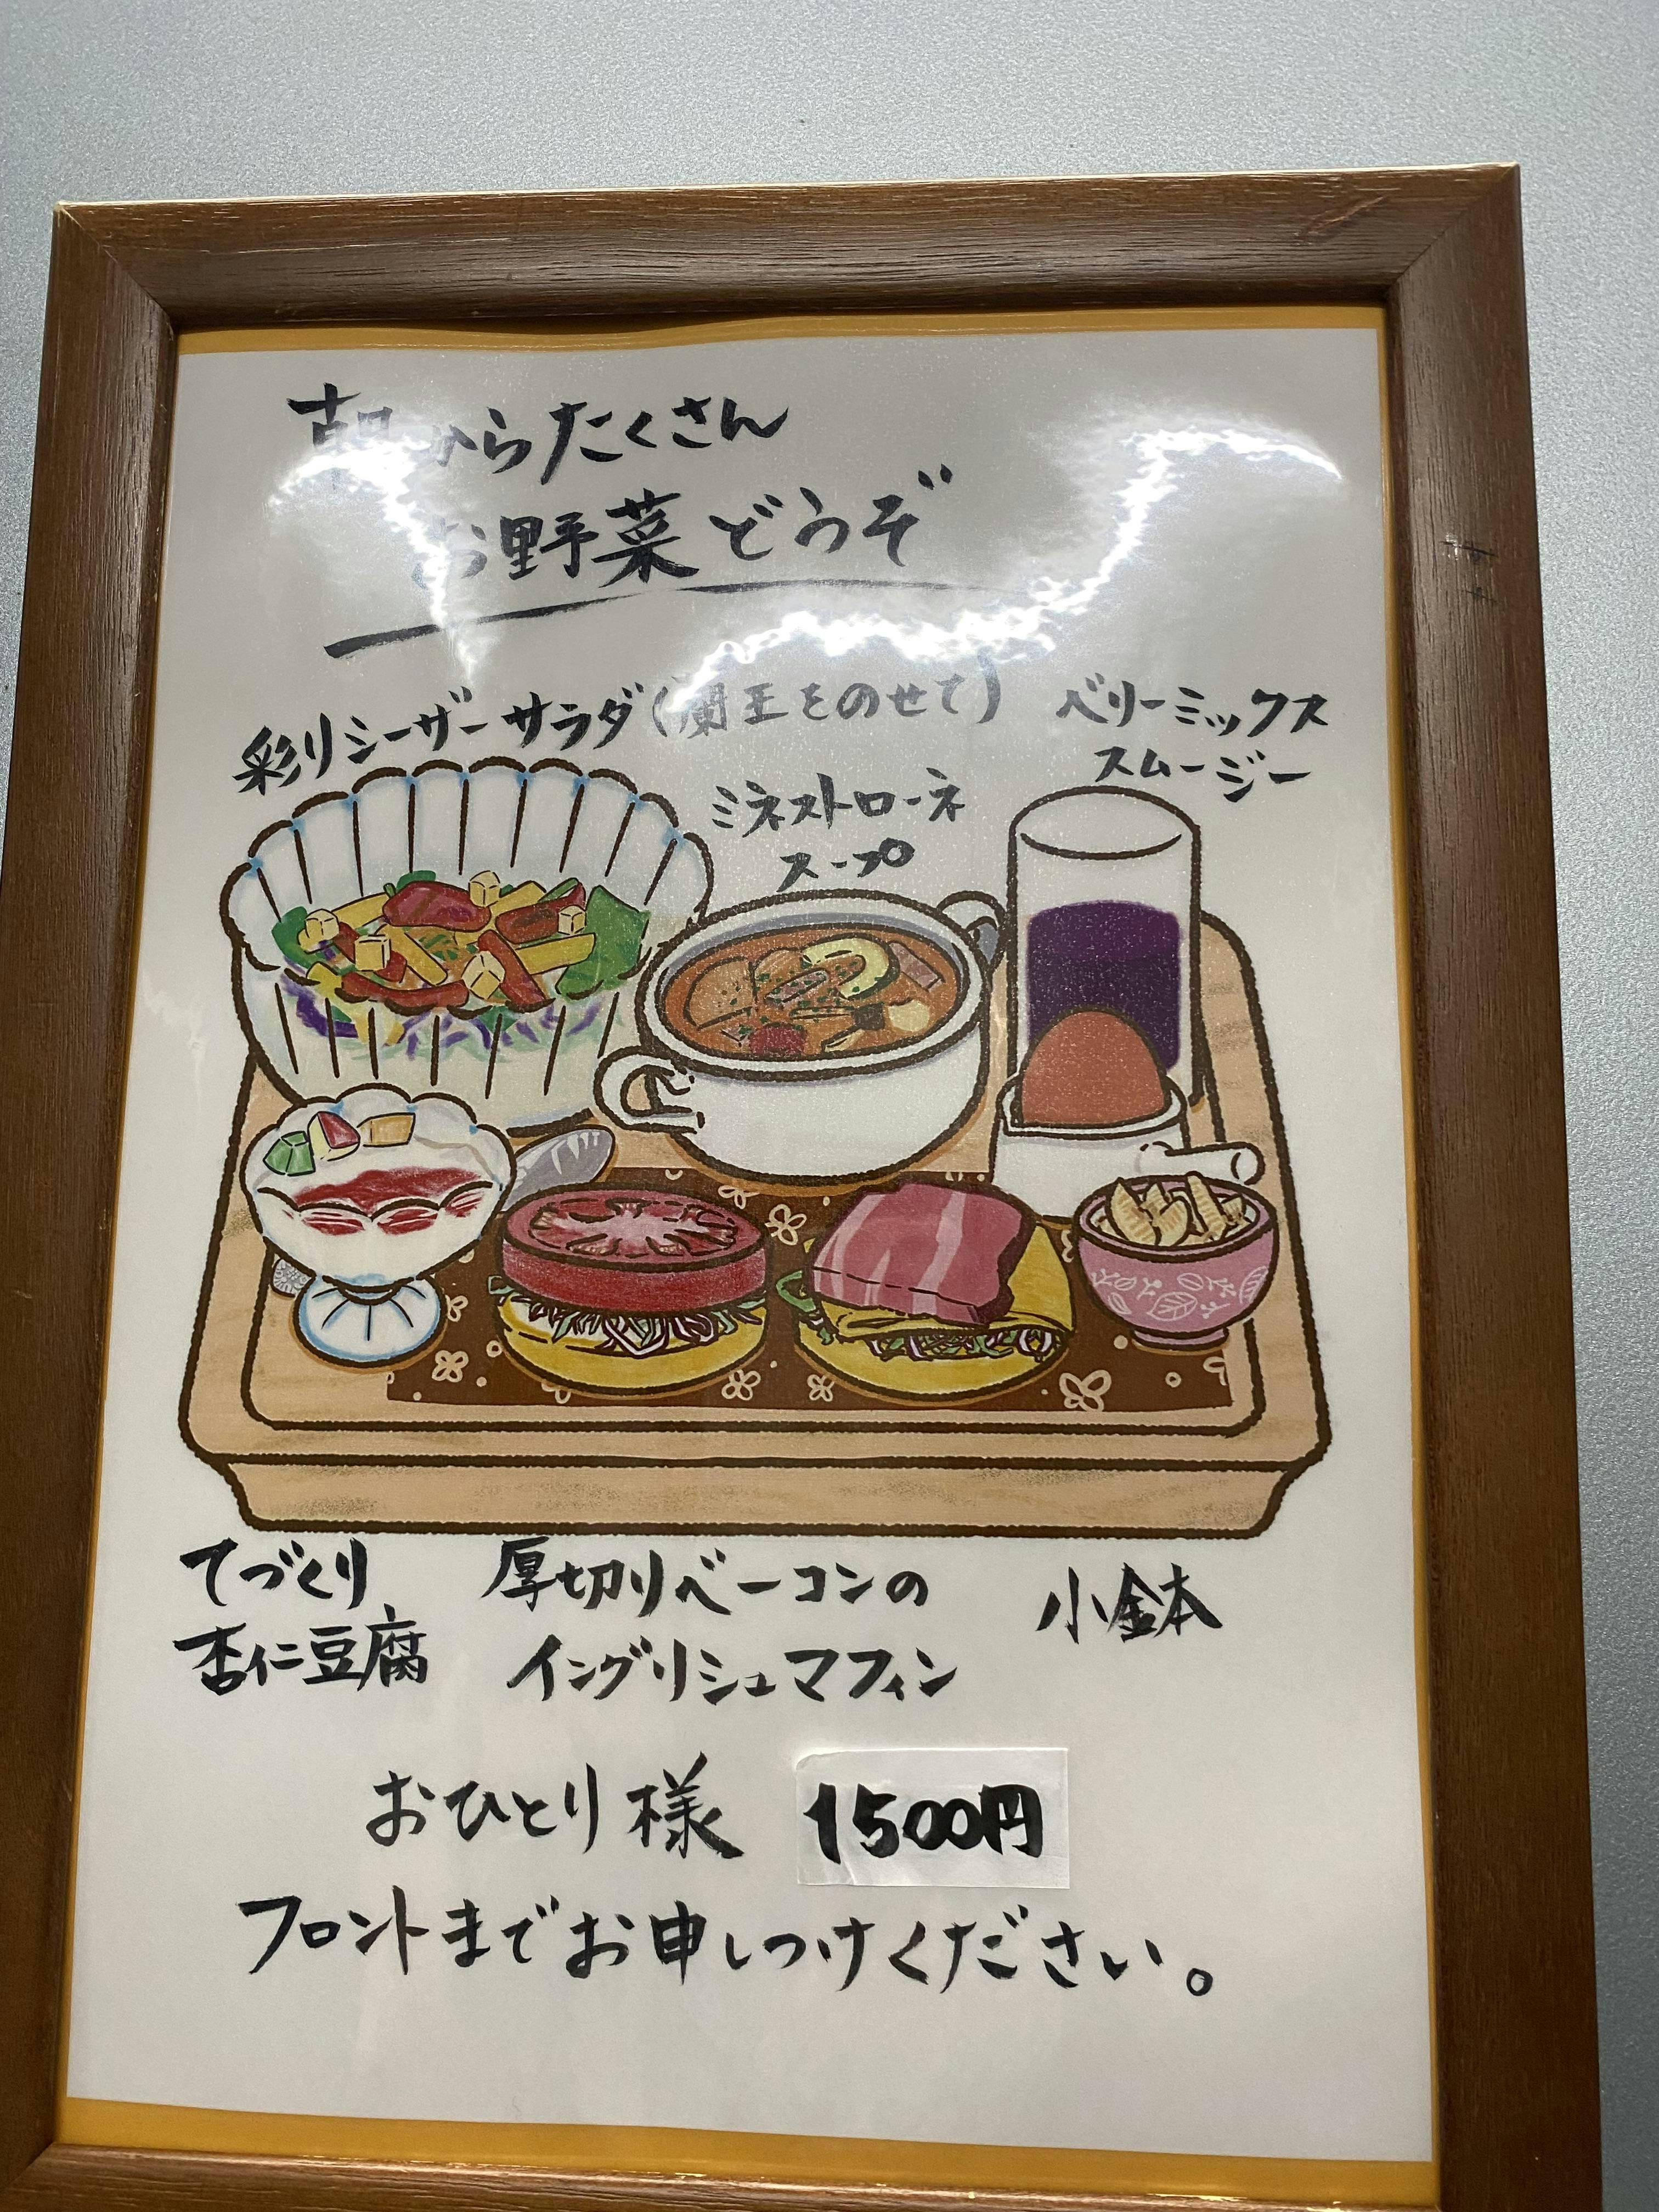 朝からたくさん
お野菜どうぞ
彩りシーザーサラダ(蘭王をのせて)
ベリーミックス
スムージー
ミネストローネ
スープ
てづくり
杏仁豆腐
厚切りベーコンの
イングリシュマフィン
小鉢
おひとり様 1500円
フロントまでお申しつけください。